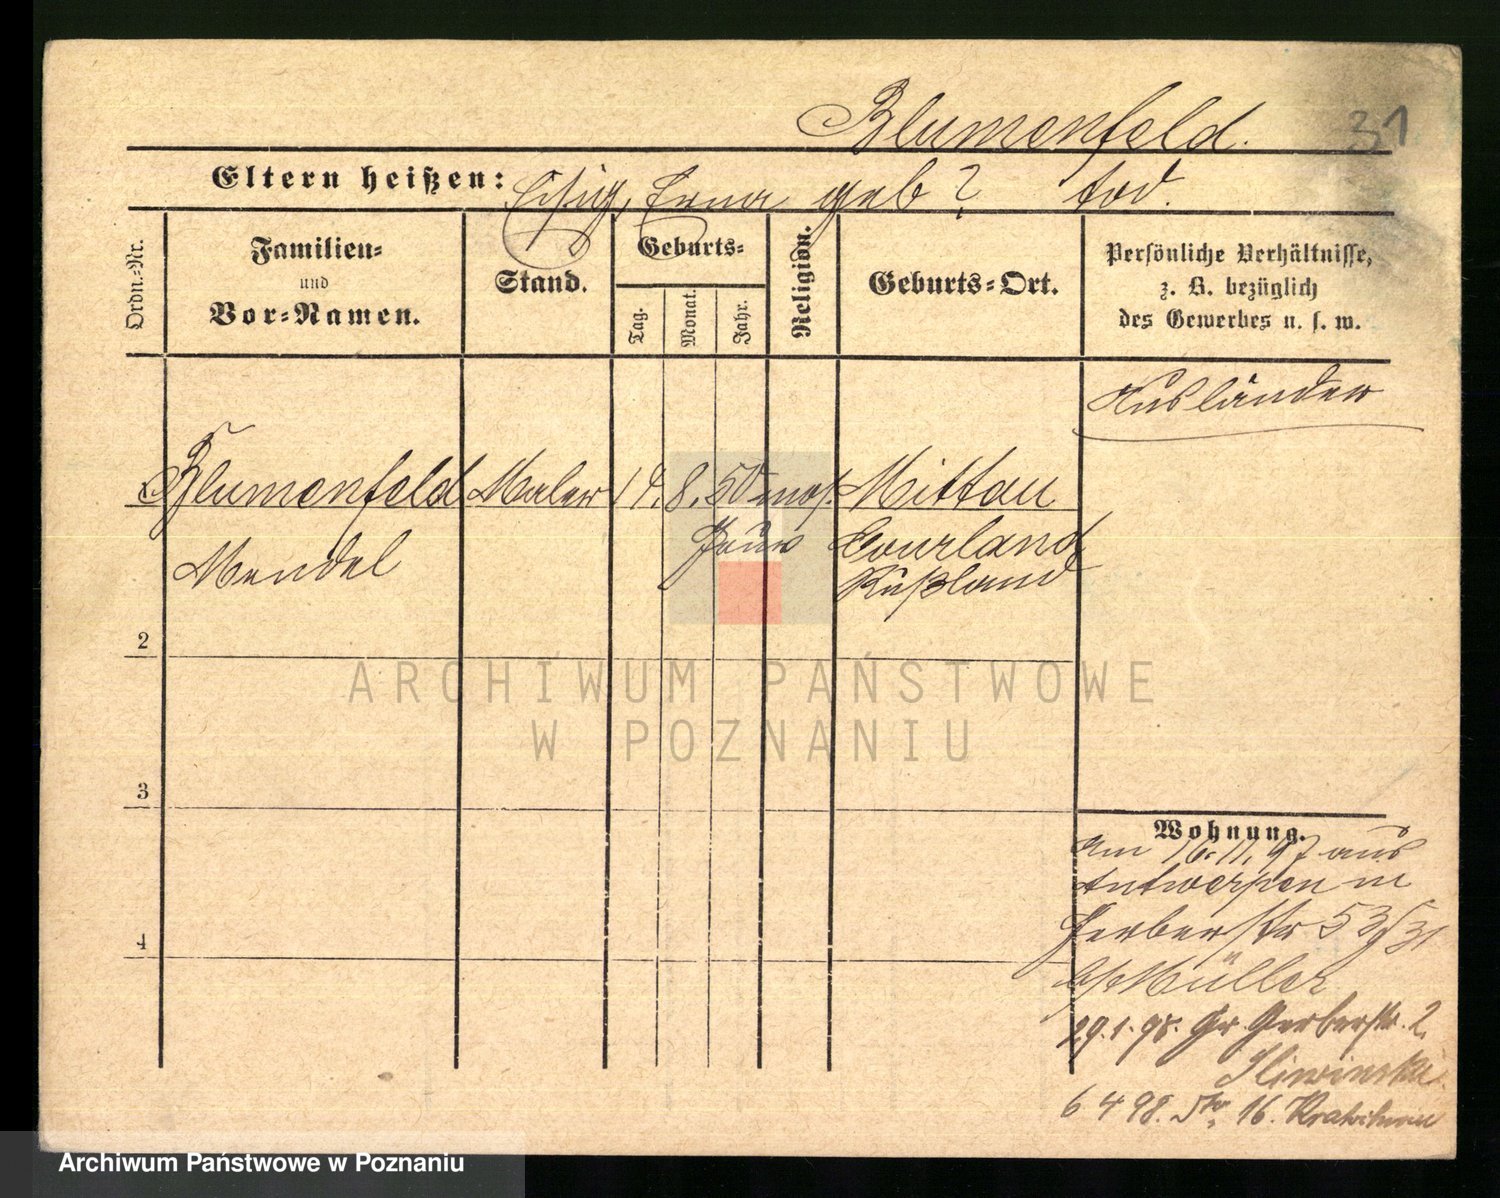 Blumenfeld.
31
Eltern heißen: Eisig, Erna geb ? tod.
Ordn.=Nr.
Familien=
und
Vor=Namen.
Stand.
Geburts=
Tag.
Monat.
Jahr.
Religion.
Geburts=Ort.
Persönliche Verhältnisse,
z. B. bezüglich
des Gewerbes u. s. w.
Ausländer
Blumenfeld Maler 14. 8. 50 mos. Mittau
Mendel Courland
Rußland
2
3
4
Wohnung.
am 16. 11. 97 aus
Antwerpen in
Gerberstr 53/31
b/Müller
29. 1. 98. Gr. Gerberstr. 2.
Sliwinski
6 4 98. 16.
ARCHIWUM PAŃSTWOWE
W POZNANIU
Archiwum Państwowe w Poznaniu